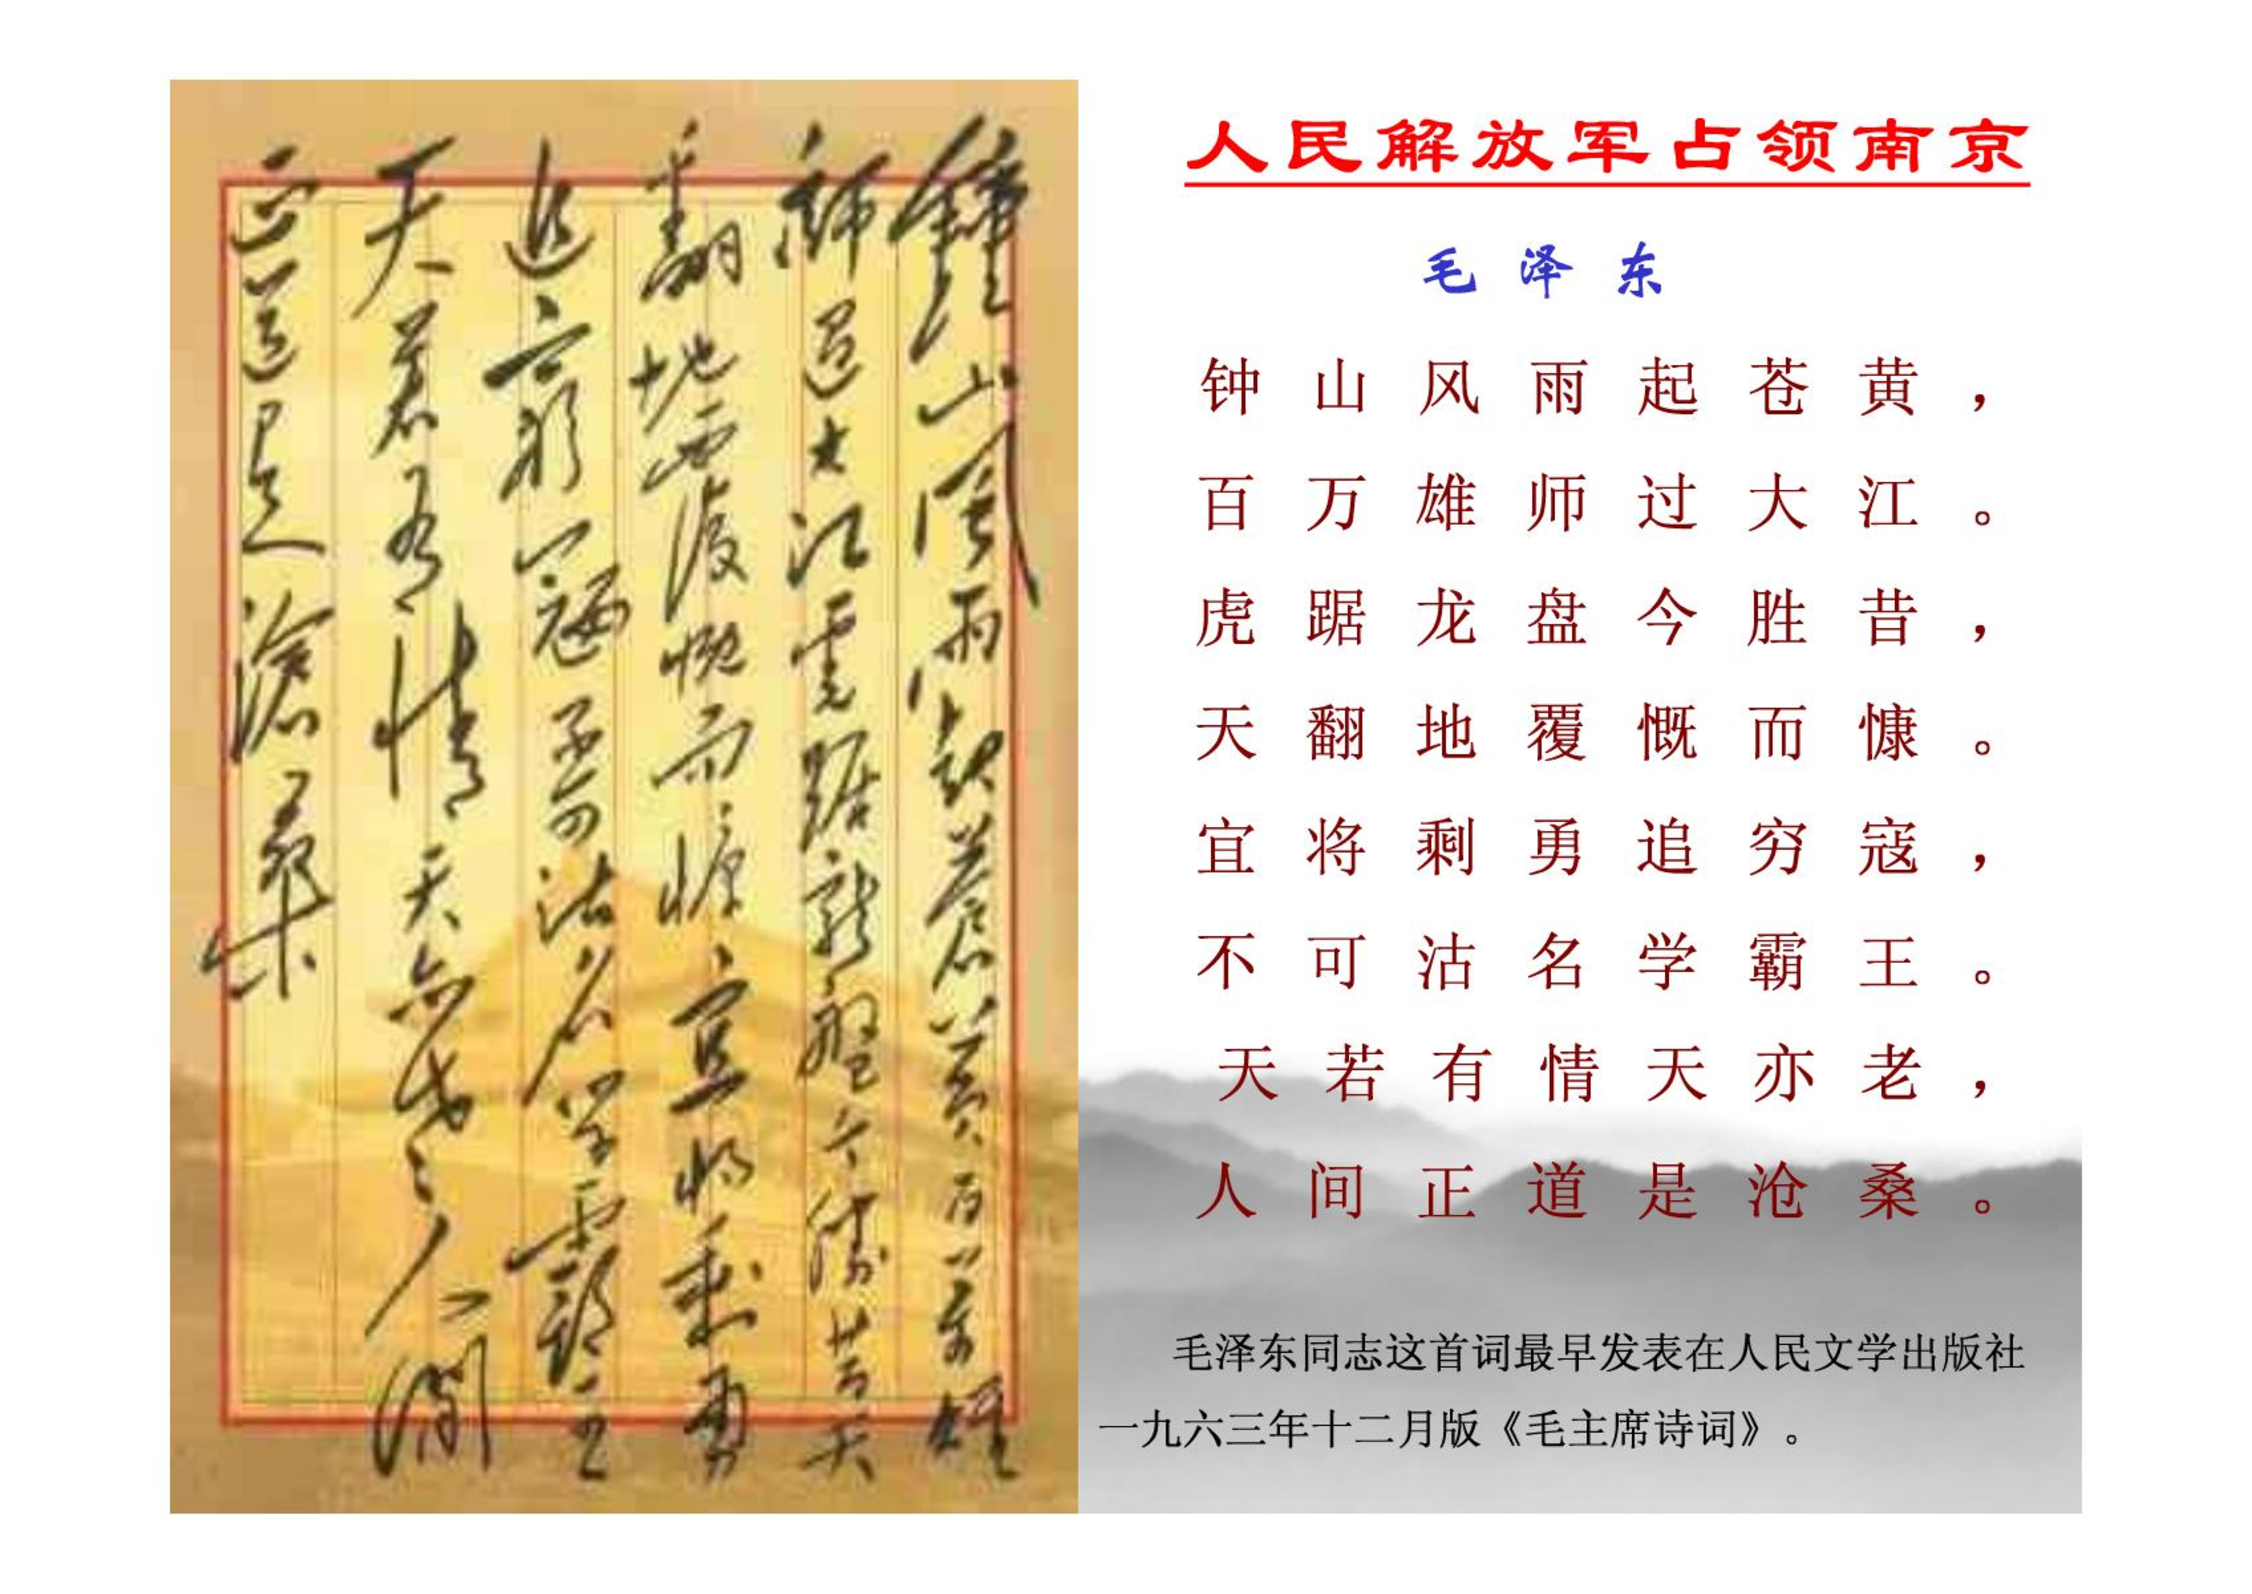 鍾山風雨起蒼黃百萬雄
師過大江虎踞龍盤今勝昔天
翻地覆慨而慷宜將剩勇
追窮寇不可沽名學霸王
天若有情天亦老人間
正道是滄桑
人民解放军占领南京
毛泽东
钟山风雨起苍黄，
百万雄师过大江。
虎踞龙盘今胜昔，
天翻地覆慨而慷。
宜将剩勇追穷寇，
不可沽名学霸王。
天若有情天亦老，
人间正道是沧桑。
毛泽东同志这首词最早发表在人民文学出版社
一九六三年十二月版《毛主席诗词》。